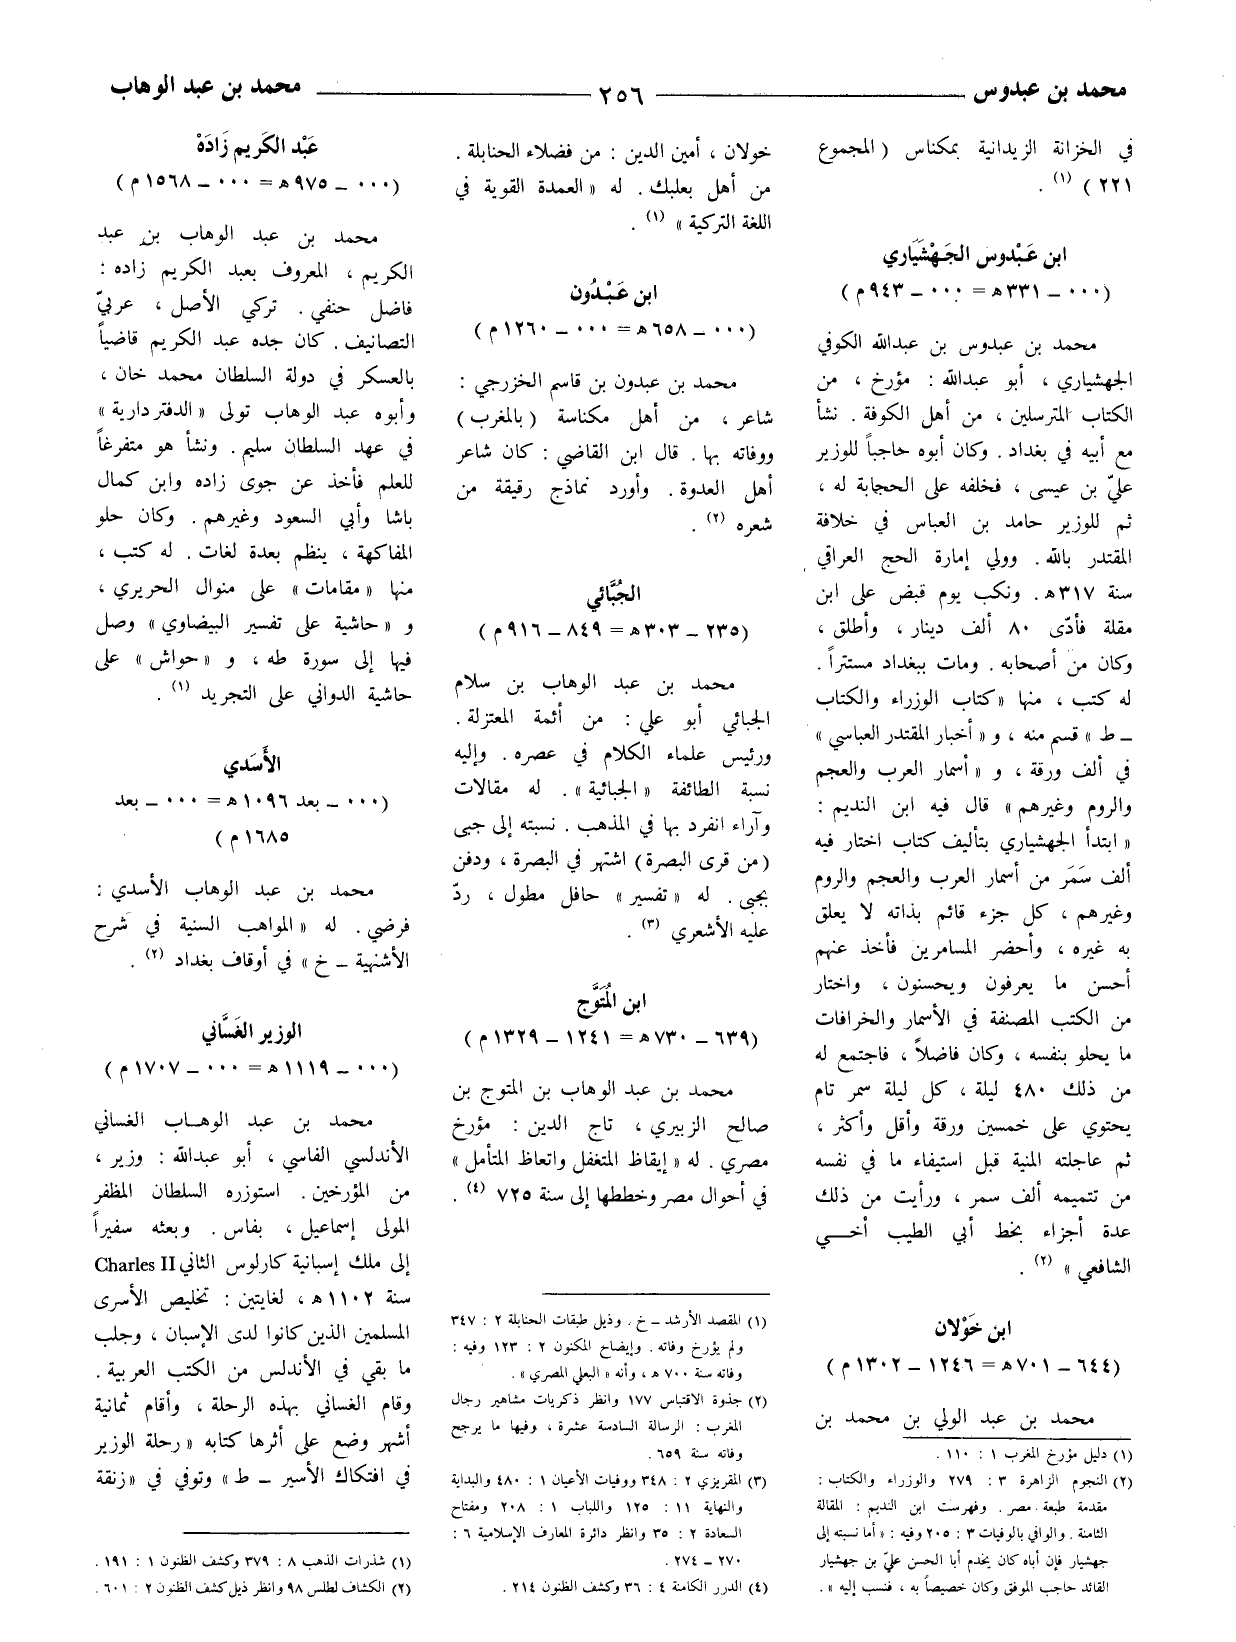 محمد بن عبدوس ــــــ ٢٥٦ ــــــ محمد بن عبد الوهاب
في الخزانة الزيدانية بمكناس ( المجموع
٢٢١ ) (١) .
ابن عَبْدوس الجَهْشَيَاري
(٠٠٠ ــ ٣٣١ ه = ٠٠٠ ــ ٩٤٣ م )
محمد بن عبدوس بن عبدالله الكوفي
الجهشياري ، أبو عبدالله : مؤرخ ، من
الكتاب المترسلين ، من أهل الكوفة . نشأ
مع أبيه في بغداد . وكان أبوه حاجباً للوزير
عليّ بن عيسى ، فخلفه على الحجابة له ،
ثم للوزير حامد بن العباس في خلافة
المقتدر بالله . وولي إمارة الحج العراقي
سنة ٣١٧ ه . ونكب يوم قبض على ابن
مقلة فأدّى ٨٠ ألف دينار ، وأطلق ،
وكان من أصحابه . ومات ببغداد مستتراً .
له كتب ، منها « كتاب الوزراء والكتاب
ــ ط » قسم منه ، و « أخبار المقتدر العباسي »
في ألف ورقة ، و « أسمار العرب والعجم
والروم وغيرهم » قال فيه ابن النديم :
« ابتدأ الجهشياري بتأليف كتاب اختار فيه
ألف سَمَر من أسمار العرب والعجم والروم
وغيرهم ، كل جزء قائم بذاته لا يعلق
به غيره ، وأحضر المسامرين فأخذ عنهم
أحسن ما يعرفون ويحسنون ، واختار
من الكتب المصنفة في الأسمار والخرافات
ما يحلو بنفسه ، وكان فاضلاً ، فاجتمع له
من ذلك ٤٨٠ ليلة ، كل ليلة سمر تام
يحتوي على خمسين ورقة وأقل وأكثر ،
ثم عاجلته المنية قبل استيفاء ما في نفسه
من تتميمه ألف سمر ، ورأيت من ذلك
عدة أجزاء بخط أبي الطيب أخــي
الشافعي » (٢) .
ابن خَوْلان
(٦٤٤ ــ ٧٠١ ه = ١٢٤٦ ــ ١٣٠٢ م )
محمد بن عبد الولي بن محمد بن
(١) دليل مؤرخ المغرب ١ : ١١٠ .
(٢) النجوم الزاهرة ٣ : ٢٧٩ والوزراء والكتاب :
مقدمة طبعة مصر . وفهرست ابن النديم : المقالة
الثامنة . والوافي بالوفيات ٣ : ٢٠٥ وفيه : « أما نسبته إلى
جهشيار فإن أباه كان يخدم أبا الحسن عليّ بن جهشيار
القائد حاجب الموفق وكان خصيصاً به ، فنسب إليه » .
خولان ، أمين الدين : من فضلاء الحنابلة .
من أهل بعلبك . له « العمدة القوية في
اللغة التركية » (١) .
ابن عَبْدُون
(٠٠٠ ــ ٦٥٨ ه = ٠٠٠ ــ ١٢٦٠ م )
محمد بن عبدون بن قاسم الخزرجي :
شاعر ، من أهل مكناسة ( بالمغرب )
ووفاته بها . قال ابن القاضي : كان شاعر
أهل العدوة . وأورد نماذج رقيقة من
شعره (٢) .
الجُبَّائي
(٢٣٥ ــ ٣٠٣ ه = ٨٤٩ ــ ٩١٦ م )
محمد بن عبد الوهاب بن سلام
الجبائي أبو علي : من أئمة المعتزلة .
ورئيس علماء الكلام في عصره . وإليه
نسبة الطائفة « الجبائية » . له مقالات
وآراء انفرد بها في المذهب . نسبته إلى جبى
( من قرى البصرة ) اشتهر في البصرة ، ودفن
بجبى . له « تفسير » حافل مطول ، ردّ
عليه الأشعري (٣) .
ابن المُتَوَّج
(٦٣٩ ــ ٧٣٠ ه = ١٢٤١ ــ ١٣٢٩ م )
محمد بن عبد الوهاب بن المتوج بن
صالح الزبيري ، تاج الدين : مؤرخ
مصري . له « إيقاظ المتغفل واتعاظ المتأمل »
في أحوال مصر وخططها إلى سنة ٧٢٥ (٤) .
(١) المقصد الأرشد ــ خ . وذيل طبقات الحنابلة ٢ : ٣٤٧
ولم يؤرخ وفاته . وإيضاح المكنون ٢ : ١٢٣ وفيه :
وفاته سنة ٧٠٠ ه ، وأنه « البعلي المصري » .
(٢) جذوة الاقتباس ١٧٧ وانظر ذكريات مشاهير رجال
المغرب : الرسالة السادسة عشرة ، وفيها ما يرجح
وفاته سنة ٦٥٩ .
(٣) المقريزي ٢ : ٣٤٨ ووفيات الأعيان ١ : ٤٨٠ والبداية
والنهاية ١١ : ١٢٥ واللباب ١ : ٢٠٨ ومفتاح
السعادة ٢ : ٣٥ وانظر دائرة المعارف الإسلامية ٦ :
٢٧٠ ــ ٢٧٤ .
(٤) الدرر الكامنة ٤ : ٣٦ وكشف الظنون ٢١٤ .
عَبْد الكَريم زَادَهْ
(٠٠٠ ــ ٩٧٥ ه = ٠٠٠ ــ ١٥٦٨ م )
محمد بن عبد الوهاب بن عبد
الكريم ، المعروف بعبد الكريم زاده :
فاضل حنفي . تركي الأصل ، عربيّ
التصانيف . كان جده عبد الكريم قاضياً
بالعسكر في دولة السلطان محمد خان ،
وأبوه عبد الوهاب تولى « الدفتردارية »
في عهد السلطان سليم . ونشأ هو متفرغاً
للعلم فأخذ عن جوى زاده وابن كمال
باشا وأبي السعود وغيرهم . وكان حلو
المفاكهة ، ينظم بعدة لغات . له كتب ،
منها « مقامات » على منوال الحريري ،
و « حاشية على تفسير البيضاوي » وصل
فيها إلى سورة طه ، و « حواش » على
حاشية الدواني على التجريد (١) .
الأَسَدي
(٠٠٠ ــ بعد ١٠٩٦ ه = ٠٠٠ ــ بعد
١٦٨٥ م )
محمد بن عبد الوهاب الأسدي :
فرضي . له « المواهب السنية في شرح
الأشنهية ــ خ » في أوقاف بغداد (٢) .
الوزير الغَسَّاني
(٠٠٠ ــ ١١١٩ ه = ٠٠٠ ــ ١٧٠٧ م )
محمد بن عبد الوهــاب الغساني
الأندلسي الفاسي ، أبو عبدالله : وزير ،
من المؤرخين . استوزره السلطان المظفر
المولى إسماعيل ، بفاس . وبعثه سفيراً
إلى ملك إسبانية كارلوس الثاني Charles II
سنة ١١٠٢ ه ، لغايتين : تخليص الأسرى
المسلمين الذين كانوا لدى الإسبان ، وجلب
ما بقي في الأندلس من الكتب العربية .
وقام الغساني بهذه الرحلة ، وأقام ثمانية
أشهر وضع على أثرها كتابه « رحلة الوزير
في افتكاك الأسير ــ ط » وتوفي في « زنقة
(١) شذرات الذهب ٨ : ٣٧٩ وكشف الظنون ١ : ١٩١ .
(٢) الكشاف لطلس ٩٨ وانظر ذيل كشف الظنون ٢ : ٦٠١ .